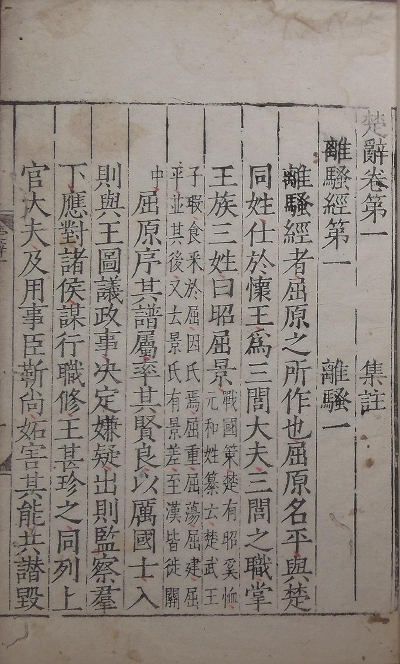 楚辭卷第一 集註
離騷經第一 離騷一
離騷經者屈原之所作也屈原名平與楚
同姓仕於懷王爲三閭大夫三閭之職掌
王族三姓曰昭屈景
戰國策楚有昭奚恤
元和姓纂云楚武王
子瑕食采於屈因氏焉屈重屈蕩屈建屈
平並其後又云景氏有景差至漢皆徙關
中
屈原序其譜屬率其賢良以厲國士入
則與王圖議政事决定嫌疑出則監察羣
下應對諸侯謀行職修王甚珍之同列上
官大夫及用事臣靳尚妬害其能共譖毀